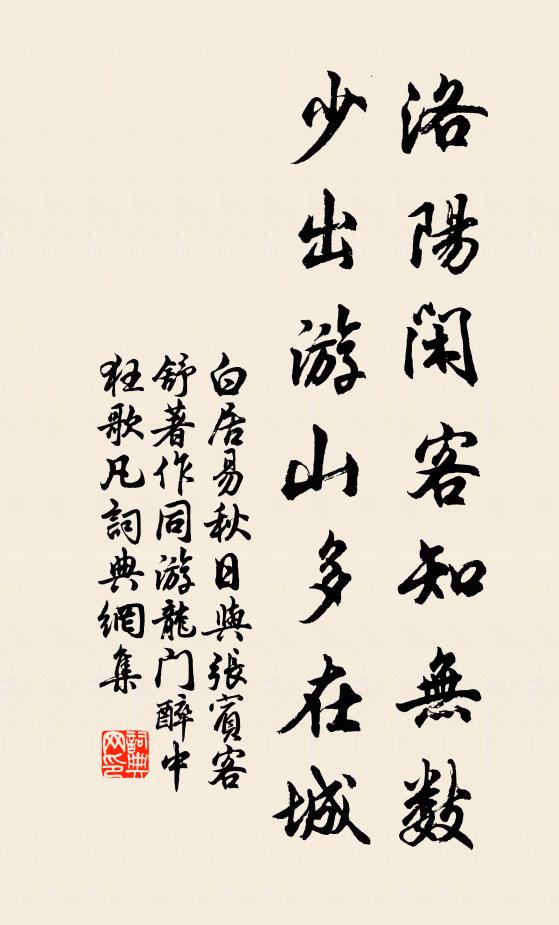 洛陽閑客知無數
少出游山多在城
白居易秋日與張賓客
舒著作同游龍门醉中
狂歌凡詞典網集
詞典
网印